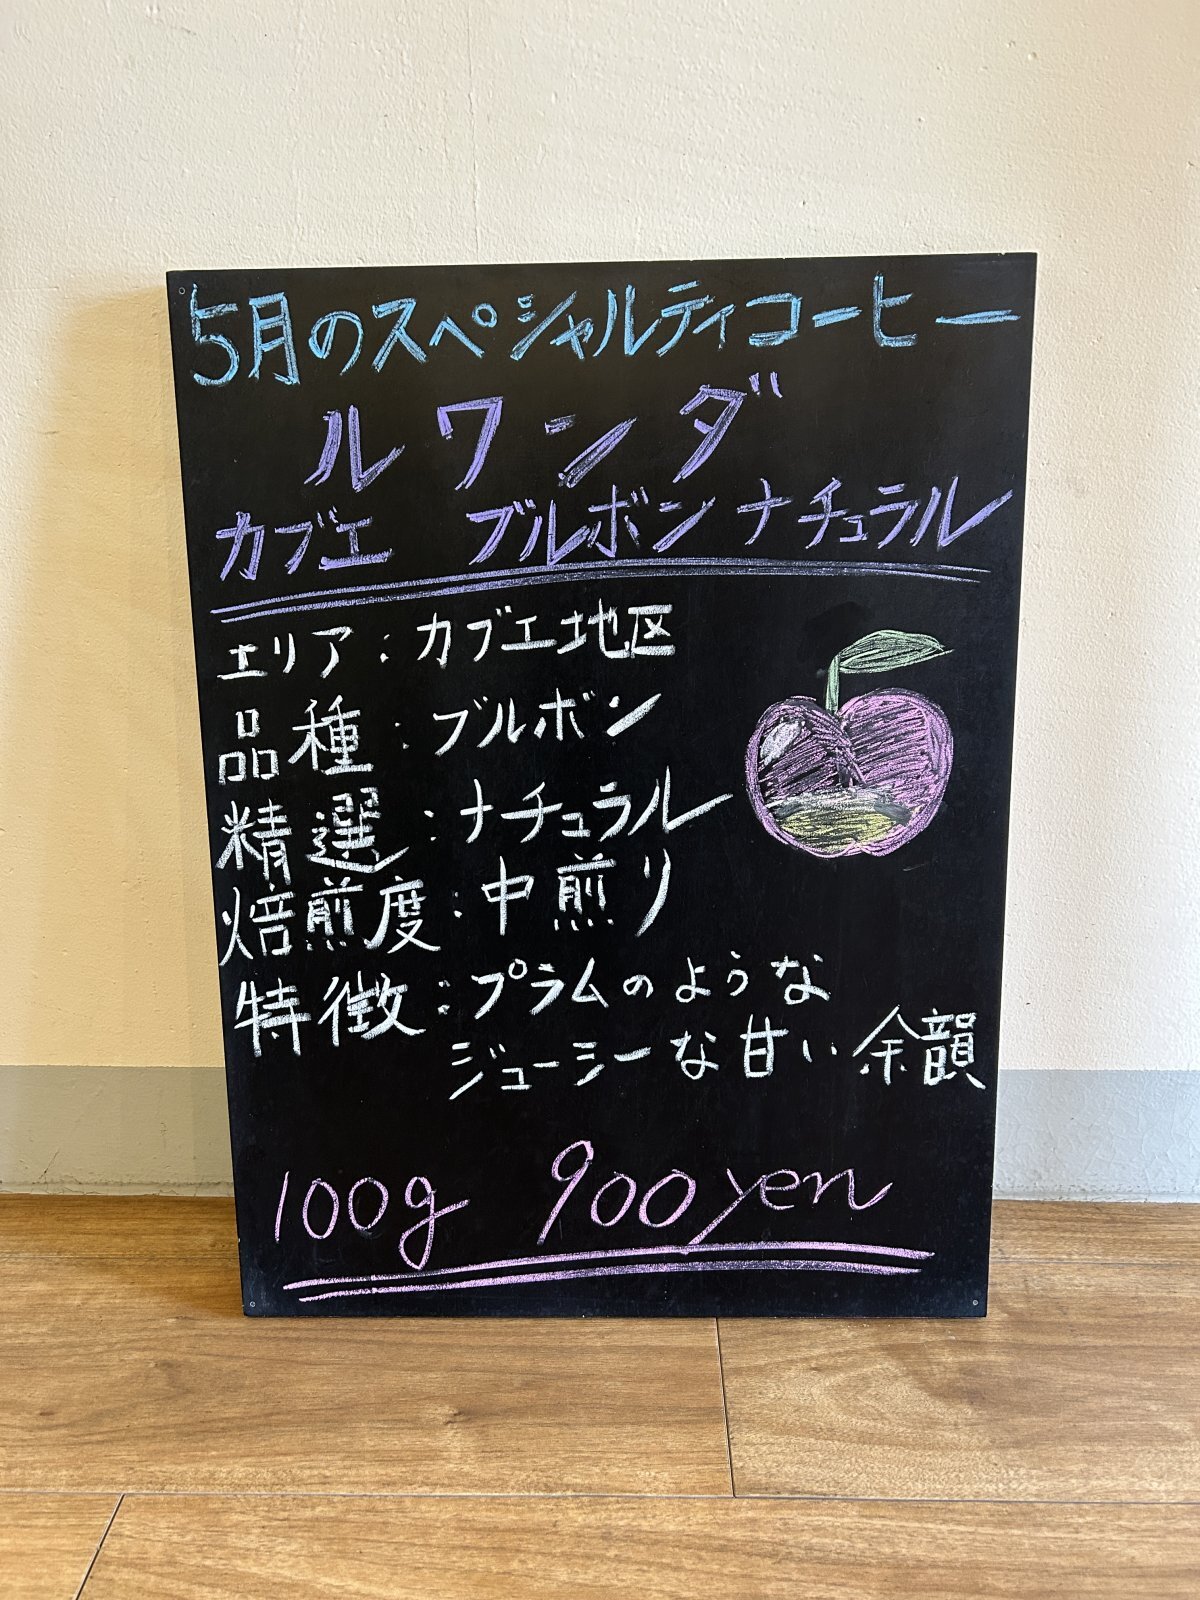 5月のスペシャルティコーヒー
ルワンダ
カブエ ブルボン ナチュラル
エリア：カブエ地区
品種：ブルボン
精選：ナチュラル
焙煎度：中煎り
特徴：プラムのような
ジューシーな甘い余韻
100g 900yen